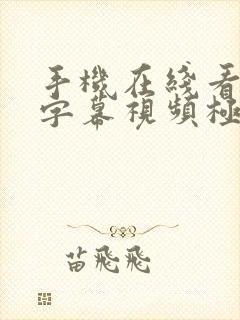 手機在綫看
字幕視頻極
苗飛飛